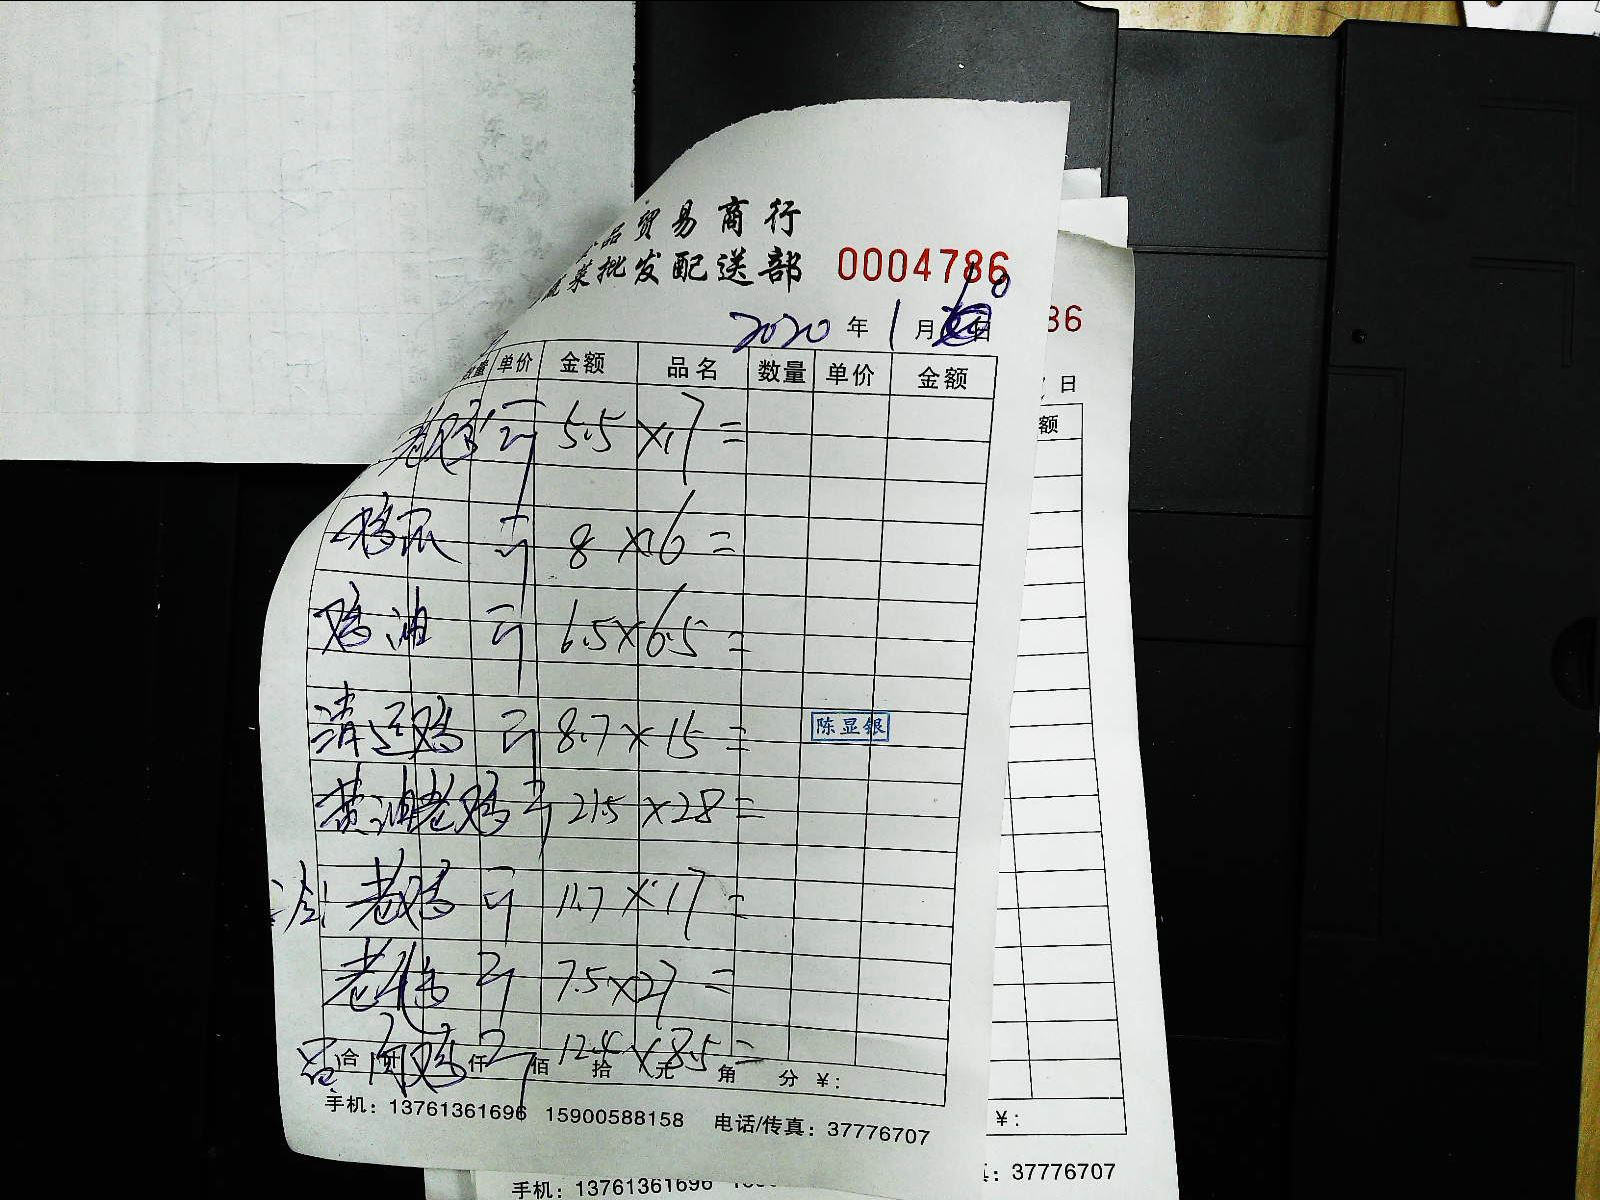 品贸易商行
蔬菜批发配送部 0004786
2020年1月10日
数量 单价 金额 品名 数量 单价 金额
老鸡 5.5×17=
鸡爪 8×16=
鸡油 6.5×6.5=
清远鸡 8.7×15=
陈显银
黄油老鸡 21.5×28=
老鸡 11.7×17=
老鸽 7.5×27=
鸡 12.4×8.5=
合计 仟 佰 拾 元 角 分 ¥:
手机: 13761361696 15900588158 电话/传真: 37776707
86
日
额
¥:
: 37776707
手机: 13761361696